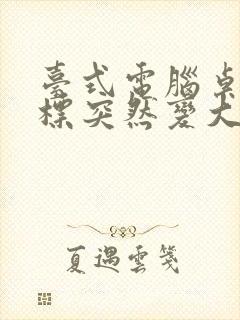 臺式電腦桌
標突然變大
夏遇雲箋